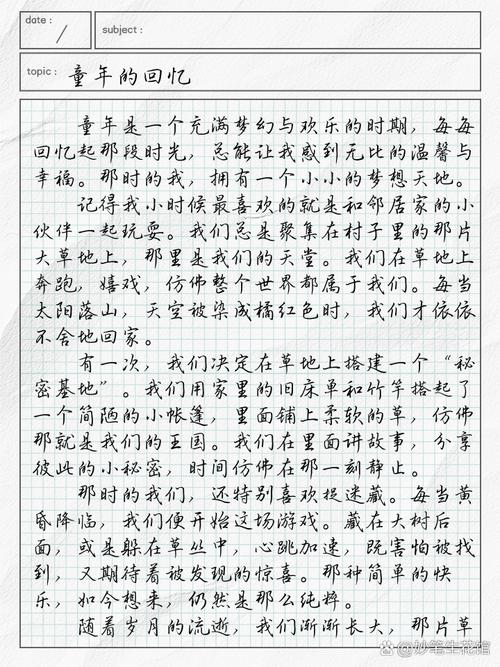 date:
/
subject:
topic: 童年的回忆
童年是一个充满梦幻与欢乐的时期，每每
回忆起那段时光，总能让我感到无比的温馨与
幸福。那时的我，拥有一个小小的梦想天地。
记得我小时候最喜欢的就是和邻居家的小
伙伴一起玩耍。我们总是聚集在村子里的那片
大草地上，那里是我们的天堂。我们在草地上
奔跑，嬉戏，仿佛整个世界都属于我们。每当
太阳落山，天空被染成橘红色时，我们才依依
不舍地回家。
有一次，我们决定在草地上搭建一个“秘
密基地”。我们用家里的旧床单和竹竿搭起了
一个简陋的小帐篷，里面铺上柔软的草，仿佛
那就是我们的王国。我们在里面讲故事，分享
彼此的小秘密，时间仿佛在那一刻静止。
那时的我们，还特别喜欢捉迷藏。每当黄
昏降临，我们便开始这场游戏。藏在大树后
面，或是躲在草丛中，心跳加速，既害怕被找
到，又期待着被发现的惊喜。那种简单的快
乐，如今想来，仍然是那么纯粹。
随着岁月的流逝，我们渐渐长大，那片草
@妙笔生花馆